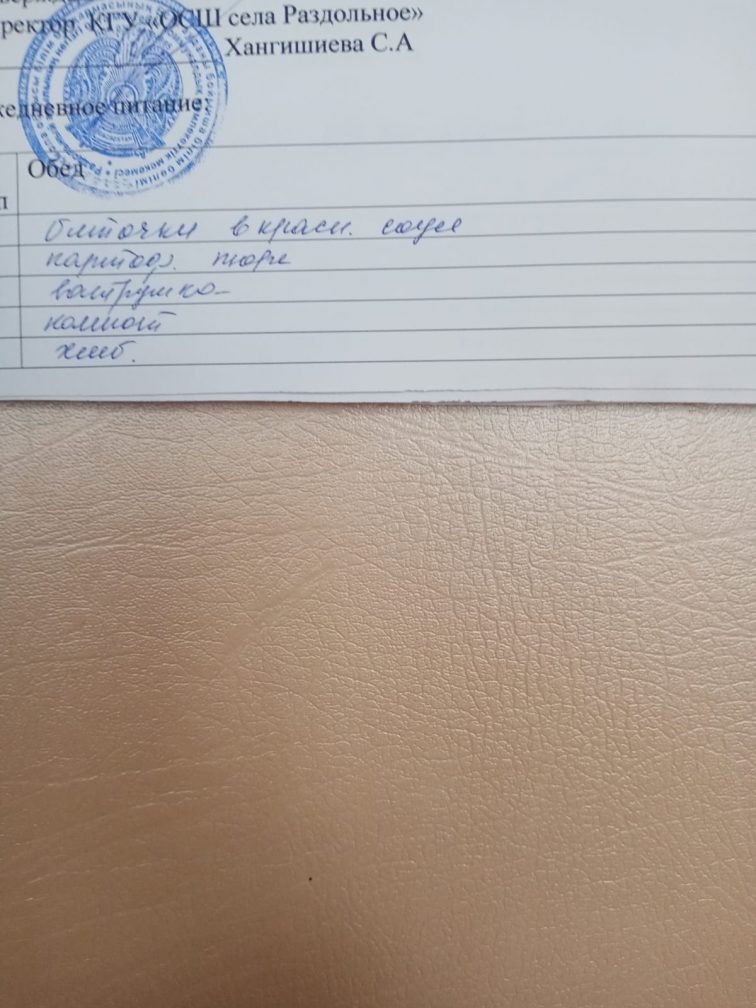 ректор КГУ «ОСШ села Раздольное»
Хангишиева С.А
жедневное питание:
Обед
л
биточки в красн. соусе
картоф. пюре
ватрушка
компот
хлеб.